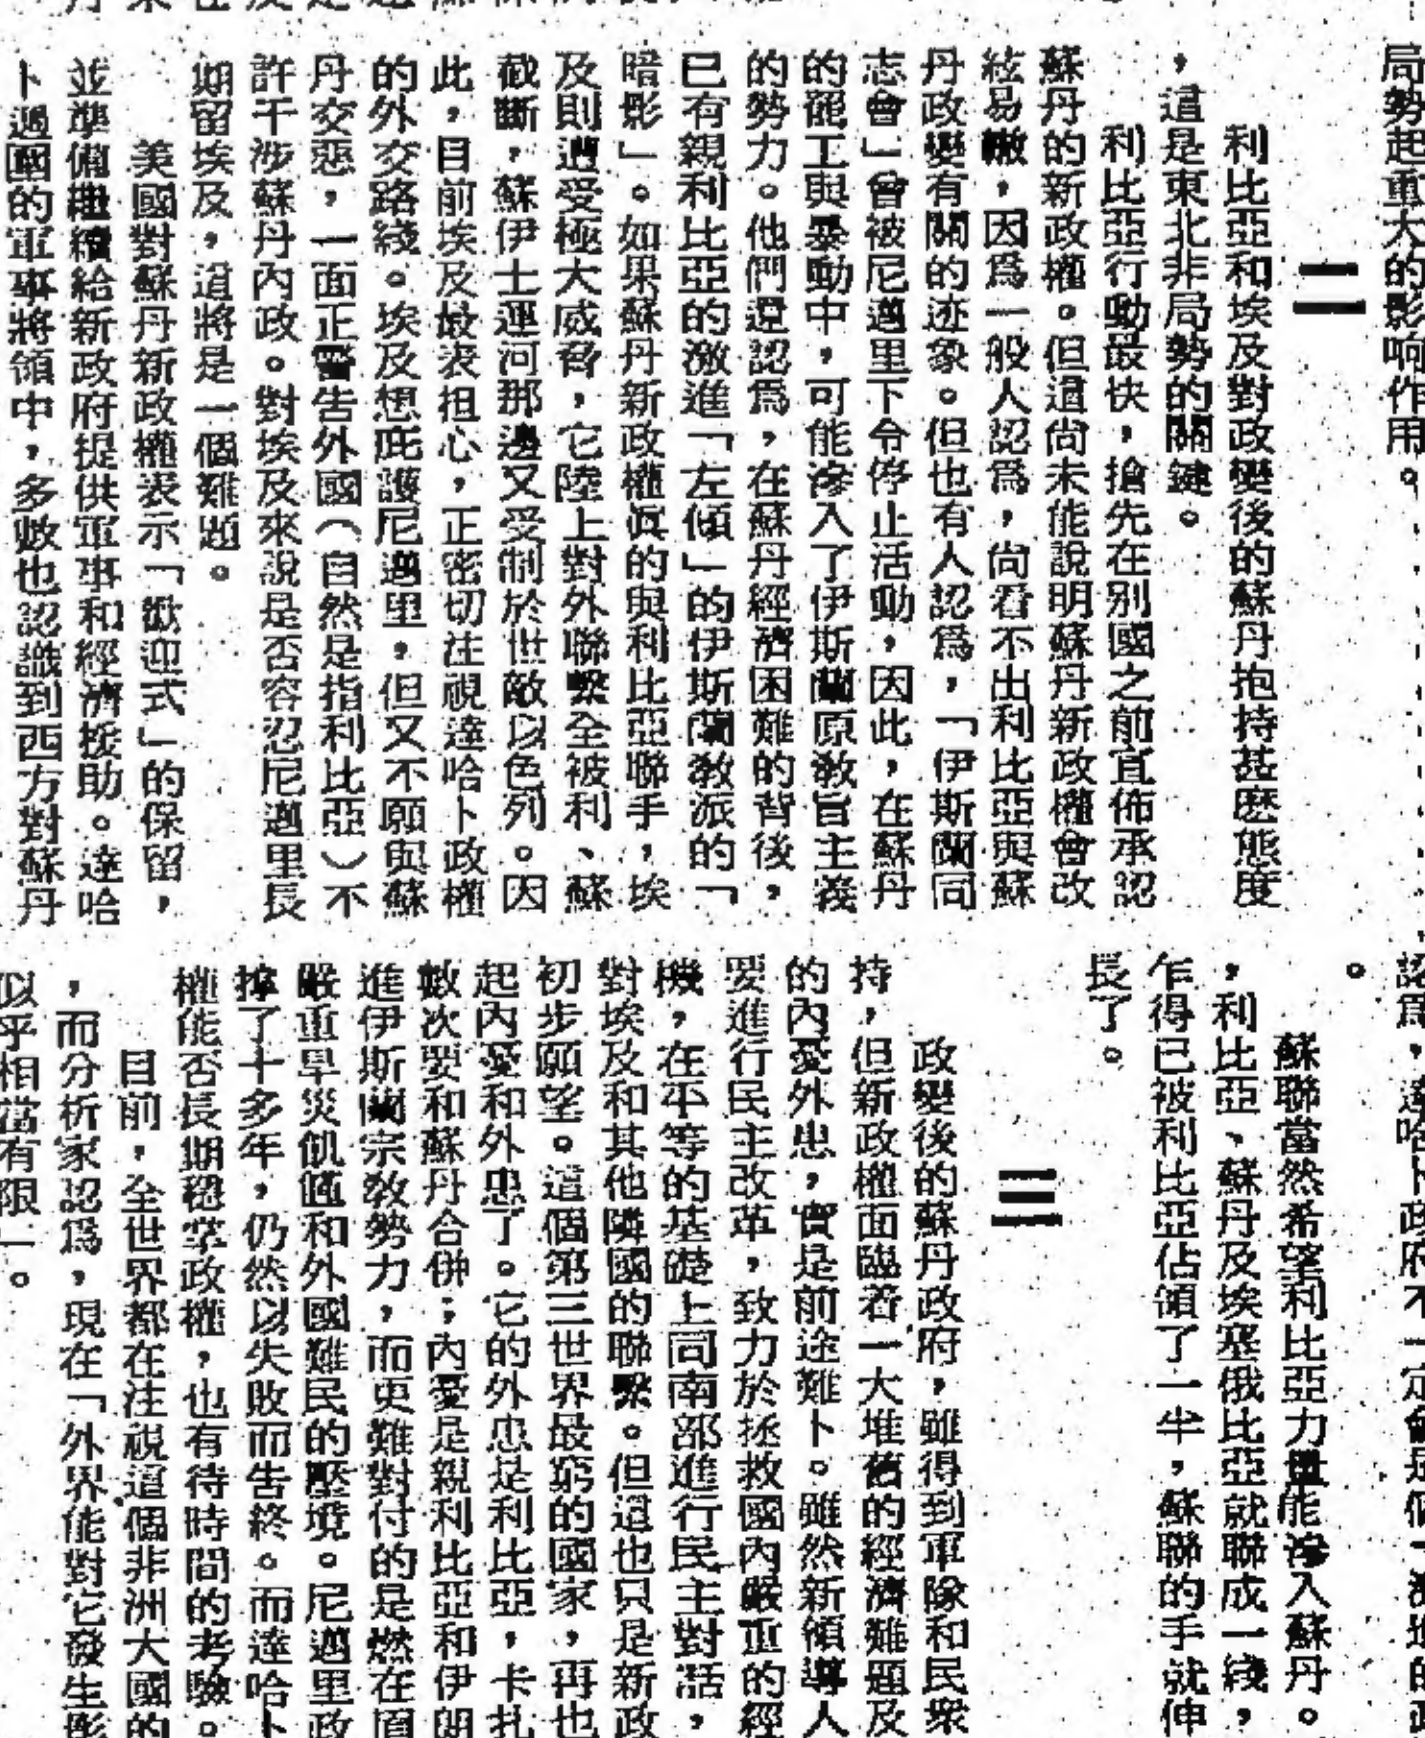 局勢起重大的影响作用。
二
利比亞和埃及對政變後的蘇丹抱持甚麽態度
，這是東北非局勢的關鍵。
利比亞行動最快，搶先在别國之前宣佈承認
蘇丹的新政權。但這尚未能說明蘇丹新政權會改
絃易轍，因爲一般人認爲，尚看不出利比亞與蘇
丹政變有關的迹象。但也有人認爲，「伊斯蘭同
志會」曾被尼邁里下令停止活動，因此，在蘇丹
的罷工與暴動中，可能滲入了伊斯蘭原教旨主義
的勢力。他們還認爲，在蘇丹經濟困難的背後，
已有親利比亞的激進「左傾」的伊斯蘭教派的「
暗影」。如果蘇丹新政權眞的與利比亞聯手，埃
及則遭受極大威脅，它陸上對外聯繫全被利、蘇
截斷，蘇伊士運河那邊又受制於世敵以色列。因
此，目前埃及最表担心，正密切注視達哈卜政權
的外交路綫。埃及想庇護尼邁里，但又不願與蘇
丹交惡，一面正警告外國（自然是指利比亞）不
許干涉蘇丹內政。對埃及來說是否容忍尼邁里長
期留埃及，這將是一個難題。
美國對蘇丹新政權表示「歡迎式」的保留，
並準備繼續給新政府提供軍事和經濟援助。達哈
卜週圍的軍事將領中，多數也認識到西方對蘇丹
認爲，達哈卜政府不一定會是個「激進的政
。
蘇聯當然希望利比亞力量能滲入蘇丹。
，利比亞、蘇丹及埃塞俄比亞就聯成一綫，
乍得已被利比亞佔領了一半，蘇聯的手就伸
長了。
三
政變後的蘇丹政府，雖得到軍隊和民衆
持，但新政權面臨着一大堆舊的經濟難題及
的內憂外患，實是前途難卜。雖然新領導人
要進行民主改革，致力於拯救國內嚴重的經
機，在平等的基礎上同南部進行民主對話，
對埃及和其他隣國的聯繫。但這也只是新政
初步願望。這個第三世界最窮的國家，再也
起內憂和外患了。它的外患是利比亞，卡扎
數次要和蘇丹合併；內憂是親利比亞和伊朗
進伊斯蘭宗教勢力，而更難對付的是燃在眉
嚴重旱災飢饉和外國難民的壓境。尼邁里政
撑了十多年，仍然以失敗而告終。而達哈卜
權能否長期穩掌政權，也有待時間的考驗。
目前，全世界都在注視這個非洲大國的
，而分析家認爲，現在「外界能對它發生影
似乎相當有限」。